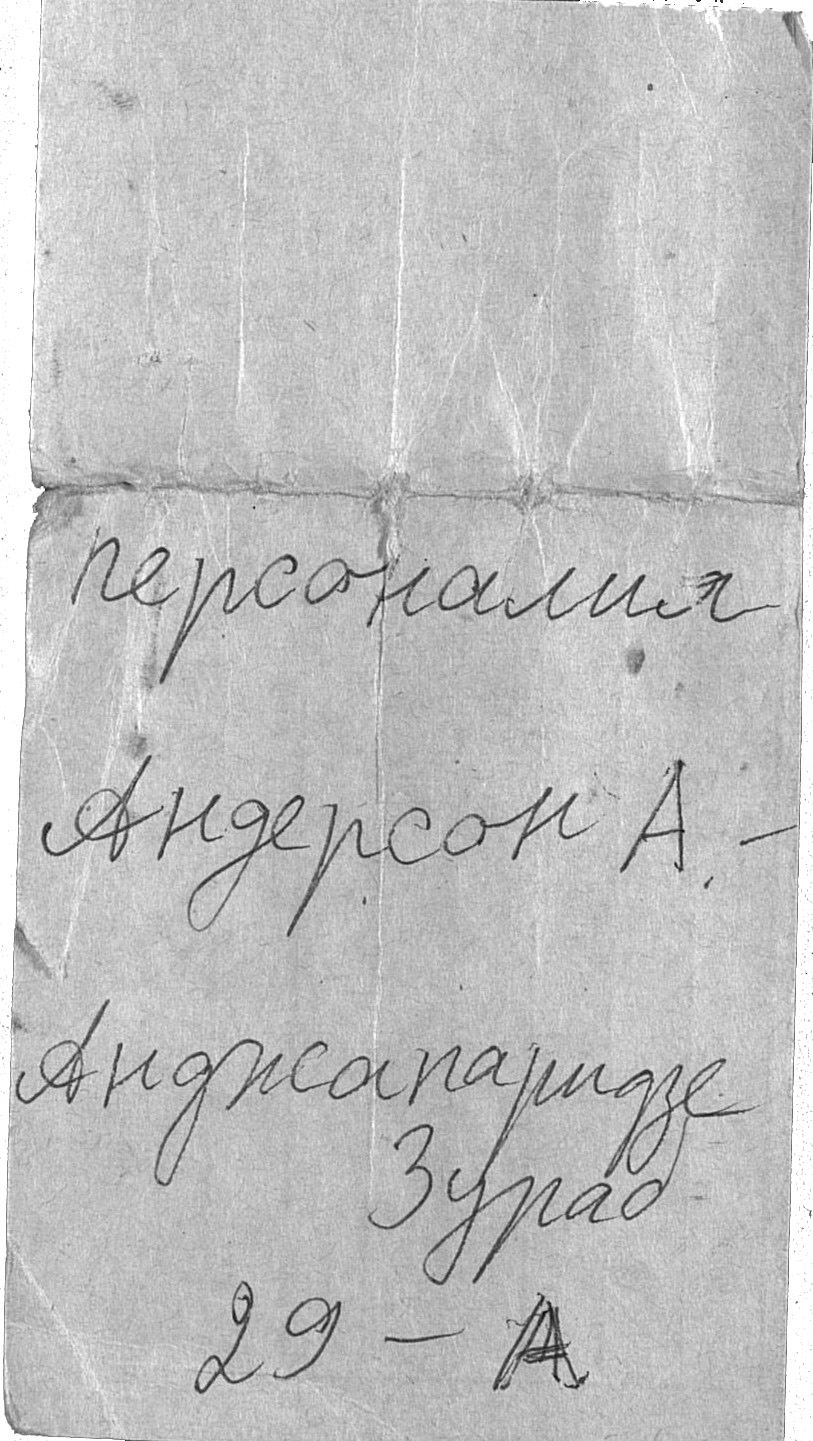 персоналия
Андерсон А. –
Анджапаридзе
Зураб
29 – А